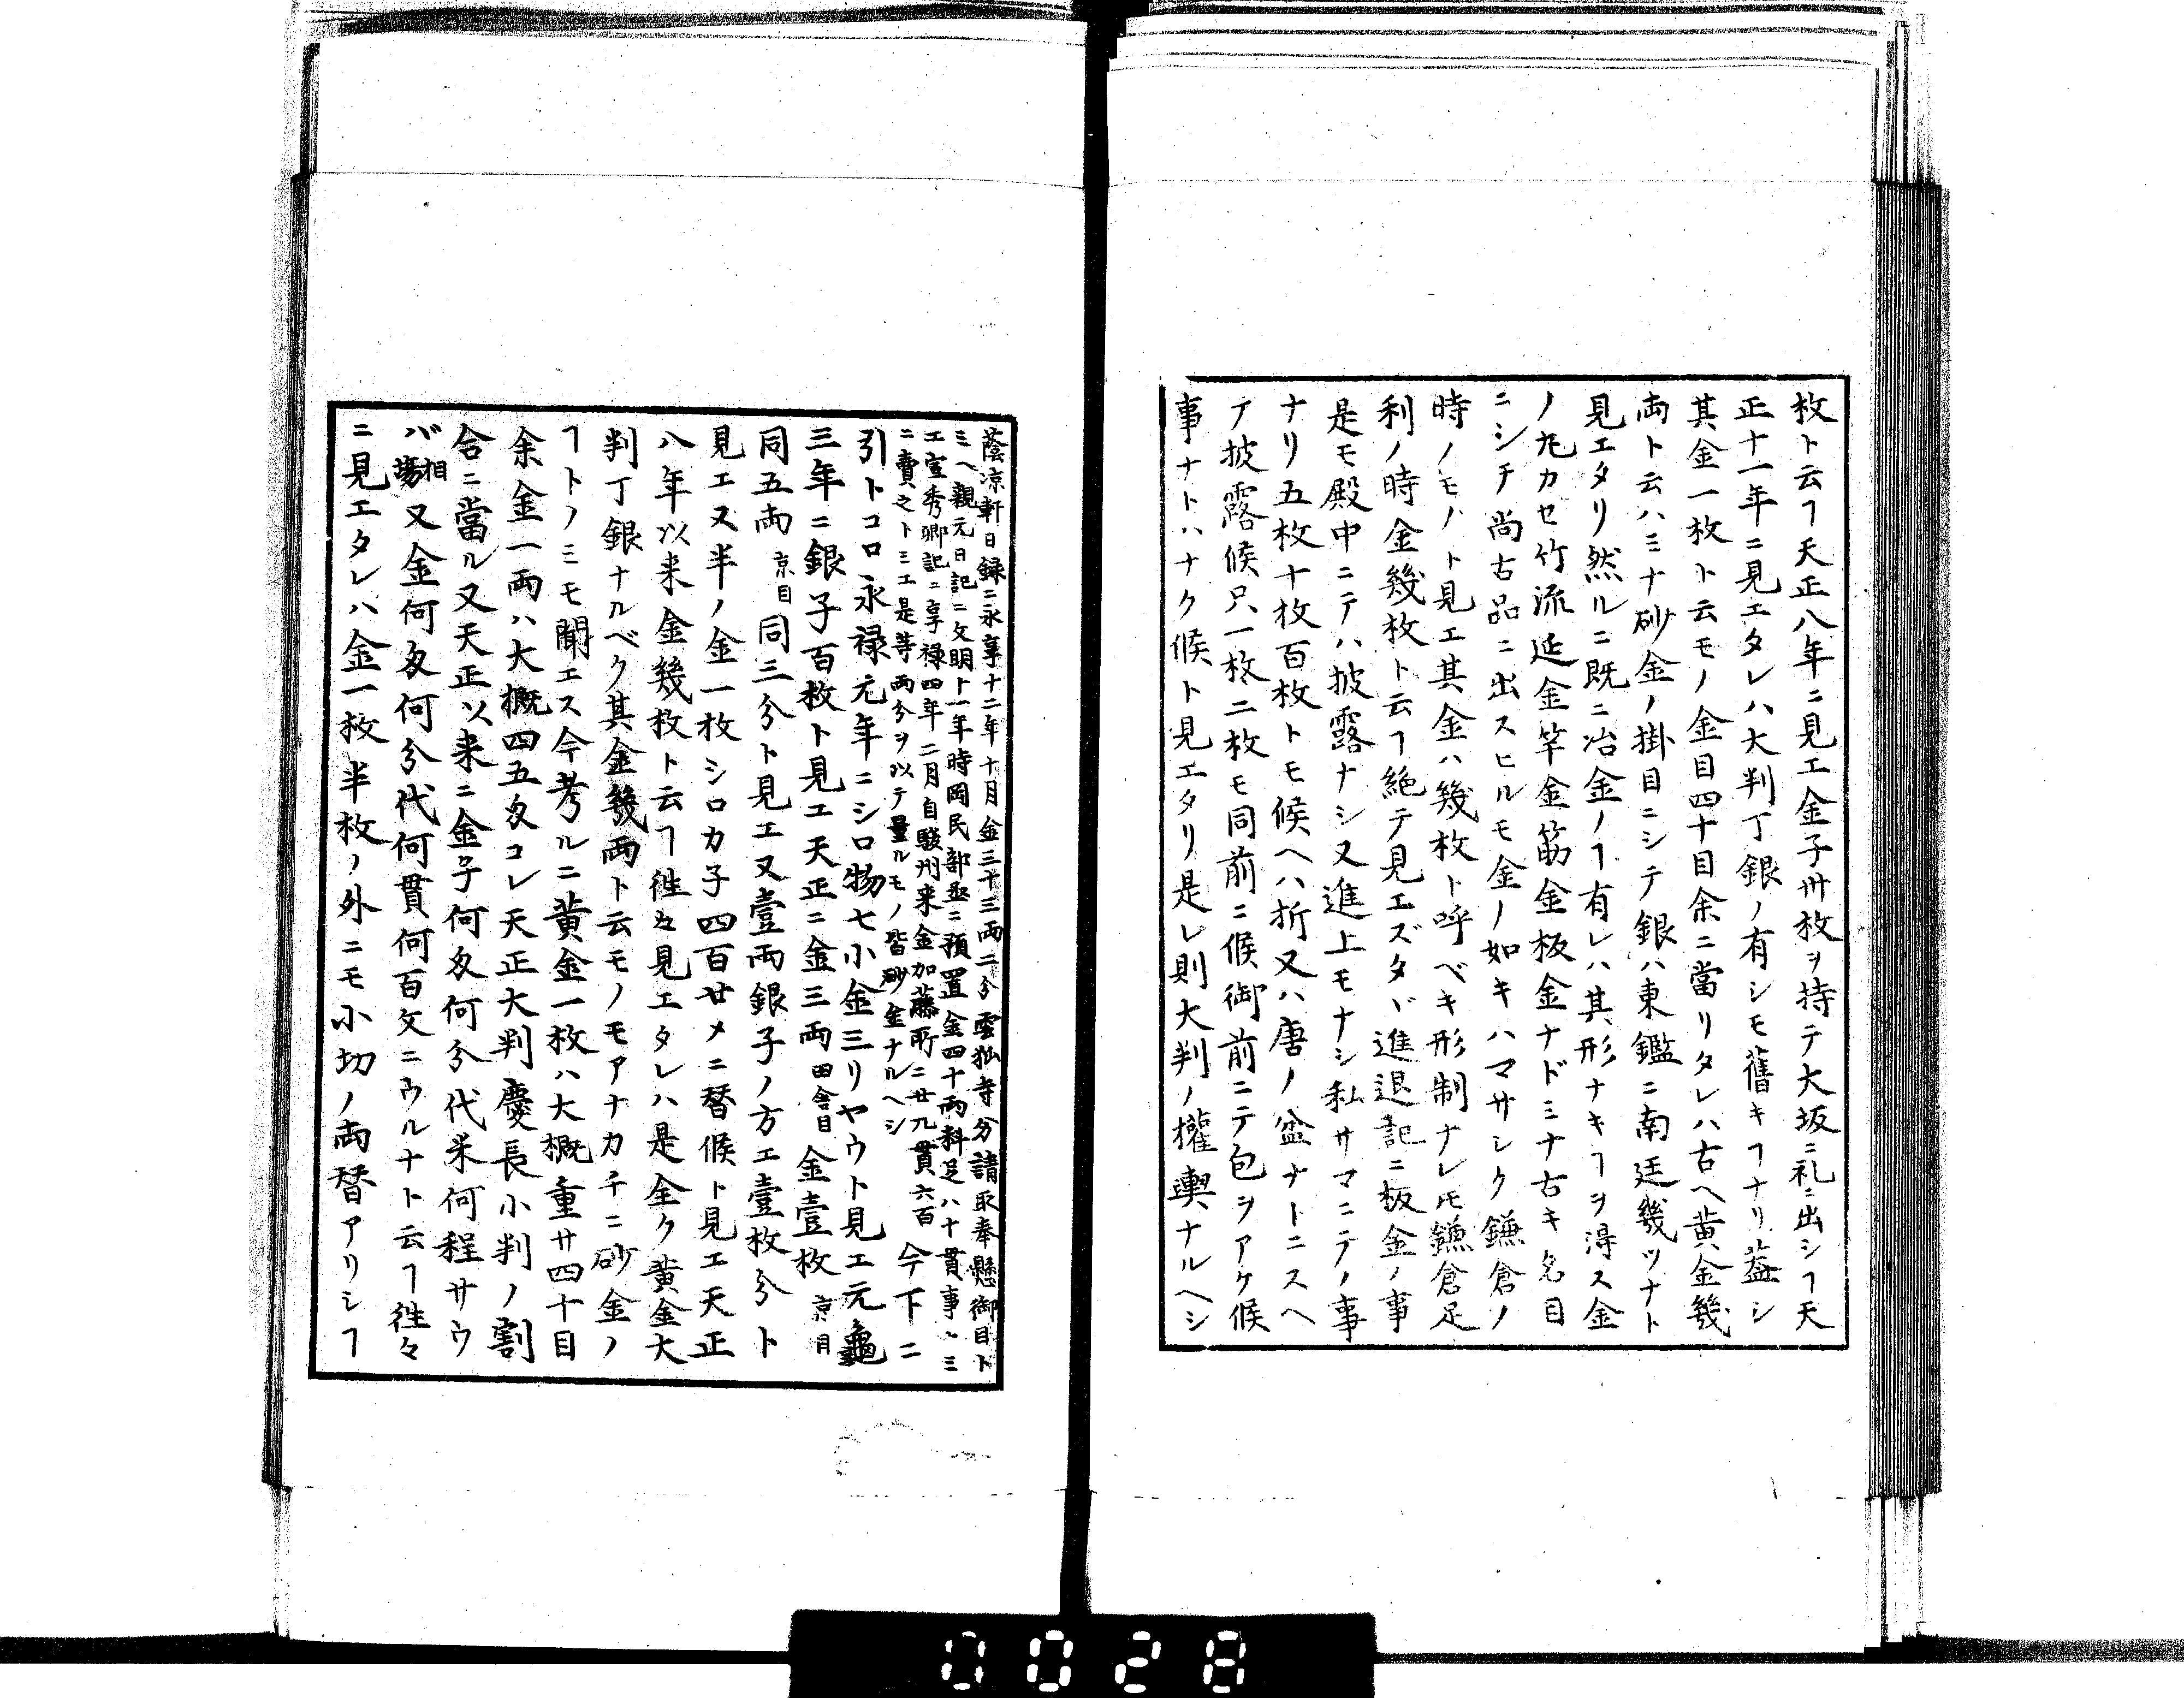 枚ト云ヿ天正八年ニ見エ金子卅枚ヲ持テ大坂ニ礼ニ出シヿ天
正十一年ニ見エタレハ大判丁銀ノ有シモ舊キヿナリ蓋シ
其金一枚ト云モノ金目四十目余ニ當リタレハ古ヘ黄金幾
両ト云ハミナ砂金ノ掛目ニシテ銀ハ東鑑ニ南廷幾ツナト
見エタリ然ルニ既ニ冶金ノヿ有レハ其形ナキヿヲ淂ス金
ノ灮カセ竹流延金竿金筋金板金ナドミナ古キ名目
ニシテ尚古品ニ出スヒルモ金ノ如キハマサシク鎌倉ノ
時ノモノト見エ其金ハ幾枚ト呼ベキ形制ナレ𪜈鎌倉足
利ノ時金幾枚ト云ヿ絶テ見エズタヾ進退記ニ板金ノ事
是モ殿中ニテハ披露ナシ又進上モナシ私サマニテノ事
ナリ五枚十枚百枚トモ候ヘハ折又ハ唐ノ盆ナトニスヘ
テ披露候只一枚二枚モ同前ニ候御前ニテ包ヲアケ候
事ナトハナク候ト見エタリ是レ則大判ノ權輿ナルヘシ
蔭凉軒日録ニ永享十二年十月金三十三両二分雲弘寺分請取奉懸御目ト
ミヘ親元日記ニ文明十一年時岡民部丞ニ預置金四十両料足八十貫事ヽミ
エ宣秀卿記ニ享禄四年二月自駿州来金加藤所ニ廿九貫六百
ニ賣之トミエ是等両分ヲ以テ量ルモノ皆砂金ナルヘシ
今下ニ
引トコロ永禄元年ニシロ物七小金三リヤウト見エ元龜
三年ニ銀子百枚ト見エ天正ニ金三両田舎目金壹枚京目
同五両京目同三分ト見エ又壹両銀子ノ方エ壹枚分ト
見エ又半ノ金一枚シロカ子四百廿メニ替候ト見エ天正
八年以来金幾枚ト云ヿ徃々見エタレハ是全ク黄金大
判丁銀ナルベク其金幾両ト云モノモアナカチニ砂金ノ
ヿトノミモ聞エス今考ルニ黄金一枚ハ大概重サ四十目
余金一両ハ大概四五匁コレ天正大判慶長小判ノ割
合ニ當ル又天正以来ニ金子何匁何分代米何程サウ
バ相塲又金何匁何分代何貫何百文ニウルナト云ヿ徃々
ニ見エタレハ金一枚半枚ノ外ニモ小切ノ両替アリシヿ
0028